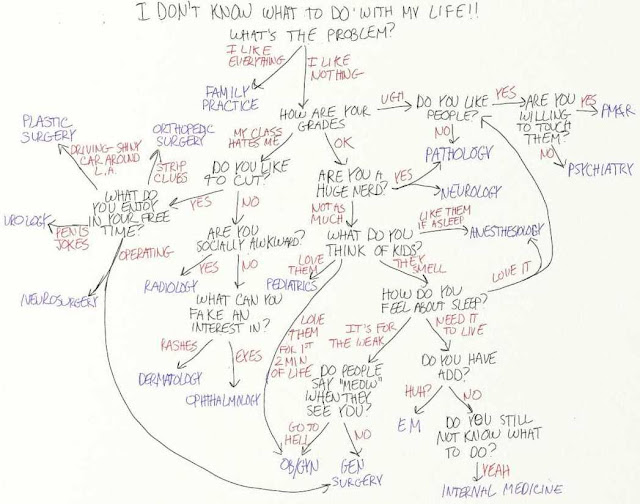 I DON'T KNOW WHAT TO DO WITH MY LIFE!!
WHAT'S THE PROBLEM?
I LIKE
EVERYTHING
I LIKE
NOTHING
FAMILY
PRACTICE
HOW ARE YOUR
GRADES
UGH
DO YOU LIKE
PEOPLE?
YES
ARE YOU
WILLING
TO TOUCH
THEM?
YES
PM&R
NO
PSYCHIATRY
NO
PATHOLOGY
MY CLASS
HATES ME
OK
PLASTIC
SURGERY
ORTHOPEDIC
SURGERY
DRIVING SHINY
CAR AROUND
L.A.
STRIP
CLUBS
DO YOU LIKE
TO CUT?
ARE YOU A
HUGE NERD?
YES
NEUROLOGY
YES
NO
WHAT DO
YOU ENJOY
IN YOUR FREE
TIME?
UROLOGY
PENIS
JOKES
OPERATING
NEUROSURGERY
NOT AS
MUCH
WHAT DO YOU
THINK OF KIDS?
LIKE THEM
IF ASLEEP
ANESTHESOLOGY
ARE YOU
SOCIALLY AWKWARD?
YES
NO
RADIOLOGY
LOVE
THEM
PEDIATRICS
THEY
SMELL
HOW DO YOU
FEEL ABOUT SLEEP?
LOVE IT
WHAT CAN YOU
FAKE AN
INTEREST IN?
RASHES
EYES
DERMATOLOGY
OPHTHALMOLOGY
LOVE
THEM
FOR 1ST
2 MIN
OF LIFE
IT'S FOR
THE WEAK
NEED IT
TO LIVE
DO PEOPLE
SAY "MEOW"
WHEN THEY
SEE YOU?
GO TO
HELL
NO
OB/GYN
GEN
SURGERY
DO YOU HAVE
ADD?
HUH?
NO
EM
DO YOU STILL
NOT KNOW WHAT
TO DO?
YEAH
INTERNAL MEDICINE